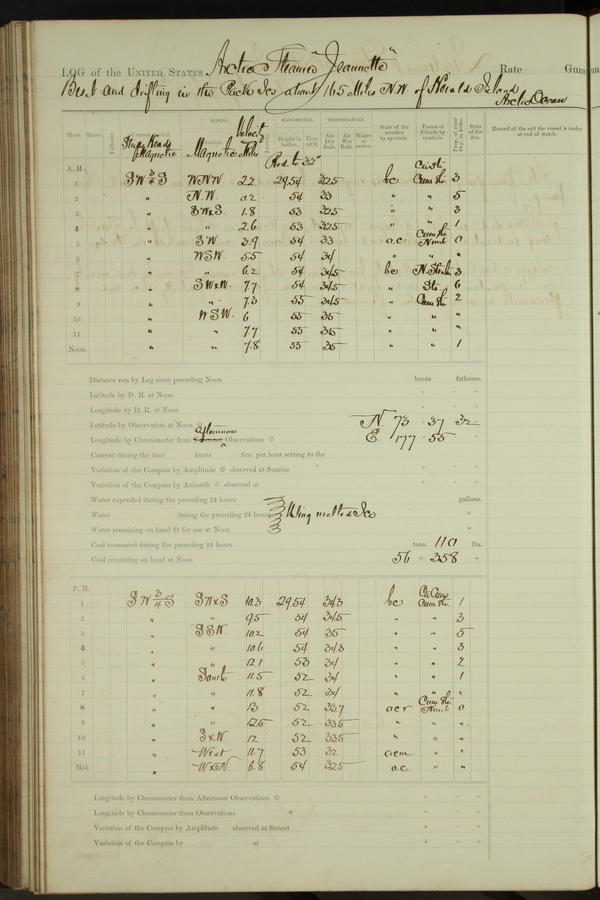 LOG of the UNITED STATES Arctic Steamer "Jeannette" Rate Guns
Beset and drifting in the Pack Ice about 165 Miles N.W. of Herald Island
Arctic Ocean
Hour. Knots. Ship's Head Magnetic WINDS. Magnetic Velocity Miles BAROMETER. Height in inches. TEMPERATURE. Air Dry Bulb. Air Wet Bulb. Water at surface. State of the weather by symbols. Forms of Clouds by symbols. State of the Sea. Record of the sail the vessel is under at end of watch.
Red to 32°
A.M. Cir. St.
1 SW 3/4 S WNW 2.2 29.54 32.5 bc Cum. St. 3
2 " N.W. 0.2 54 33 " " 5
3 " SWxS 1.8 53 32.5 " " 3
4 " " 2.6 53 32.5 " " 1
5 " SW 3.9 54 33 o.c. Cum. St. Nimb. 0
6 " WSW 5.5 54 34 " " "
7 " " 6.2 54 34.5 bc N. Strat. 3
8 " SWxW 7.7 54 34.5 " Str. 6
9 " " 7.3 55 34.5 " Cum. St. 2
10 " WSW 6 55 35 " " "
11 " " 7.7 55 35 " " "
Noon. " " 7.8 55 35 " " 1
Distance run by Log since preceding Noon knots fathoms.
Latitude by D. R. at Noon
Longitude by D. R. at Noon
Latitude by Observation at Noon N. 73 37 32
Longitude by Chronometer from afternoon Observations E. 177 55 "
Current during the time knots fms. per hour setting to the
Variation of the Compass by Amplitude observed at Sunrise
Variation of the Compass by Azimuth observed at
Water expended during the preceding 24 hours gallons.
Water during the preceding 24 hours Using melted Ice "
Water remaining on hand fit for use at Noon "
Coal consumed during the preceding 24 hours tons. 110 lbs.
Coal remaining on hand at Noon 56 " 358 "
P. M.
1 SW 3/4 S SWxS 10.3 29.54 34.3 bc Ci. Cum. Cum. St. 1
2 " " 9.5 54 34.5 " " 3
3 " SSW 10.2 54 35 " " 5
4 " " 10.6 54 34.3 " " 3
5 " " 12.1 53 34 " " 2
6 " South 11.5 52 34 " " 1
7 " " 11.8 52 34 " " "
8 " " 13 52 33.7 ocr Cum. St. Nimb. 0
9 " " 12.5 52 33.5 " " "
10 " SxW 12 52 33.5 " " "
11 " West 11.7 53 32 ocm " "
Mid. " WxN 6.8 54 32.5 o.c. " "
Longitude by Chronometer from Afternoon Observations
Longitude by Chronometer from Observations
Variation of the Compass by Amplitude observed at Sunset
Variation of the Compass by at